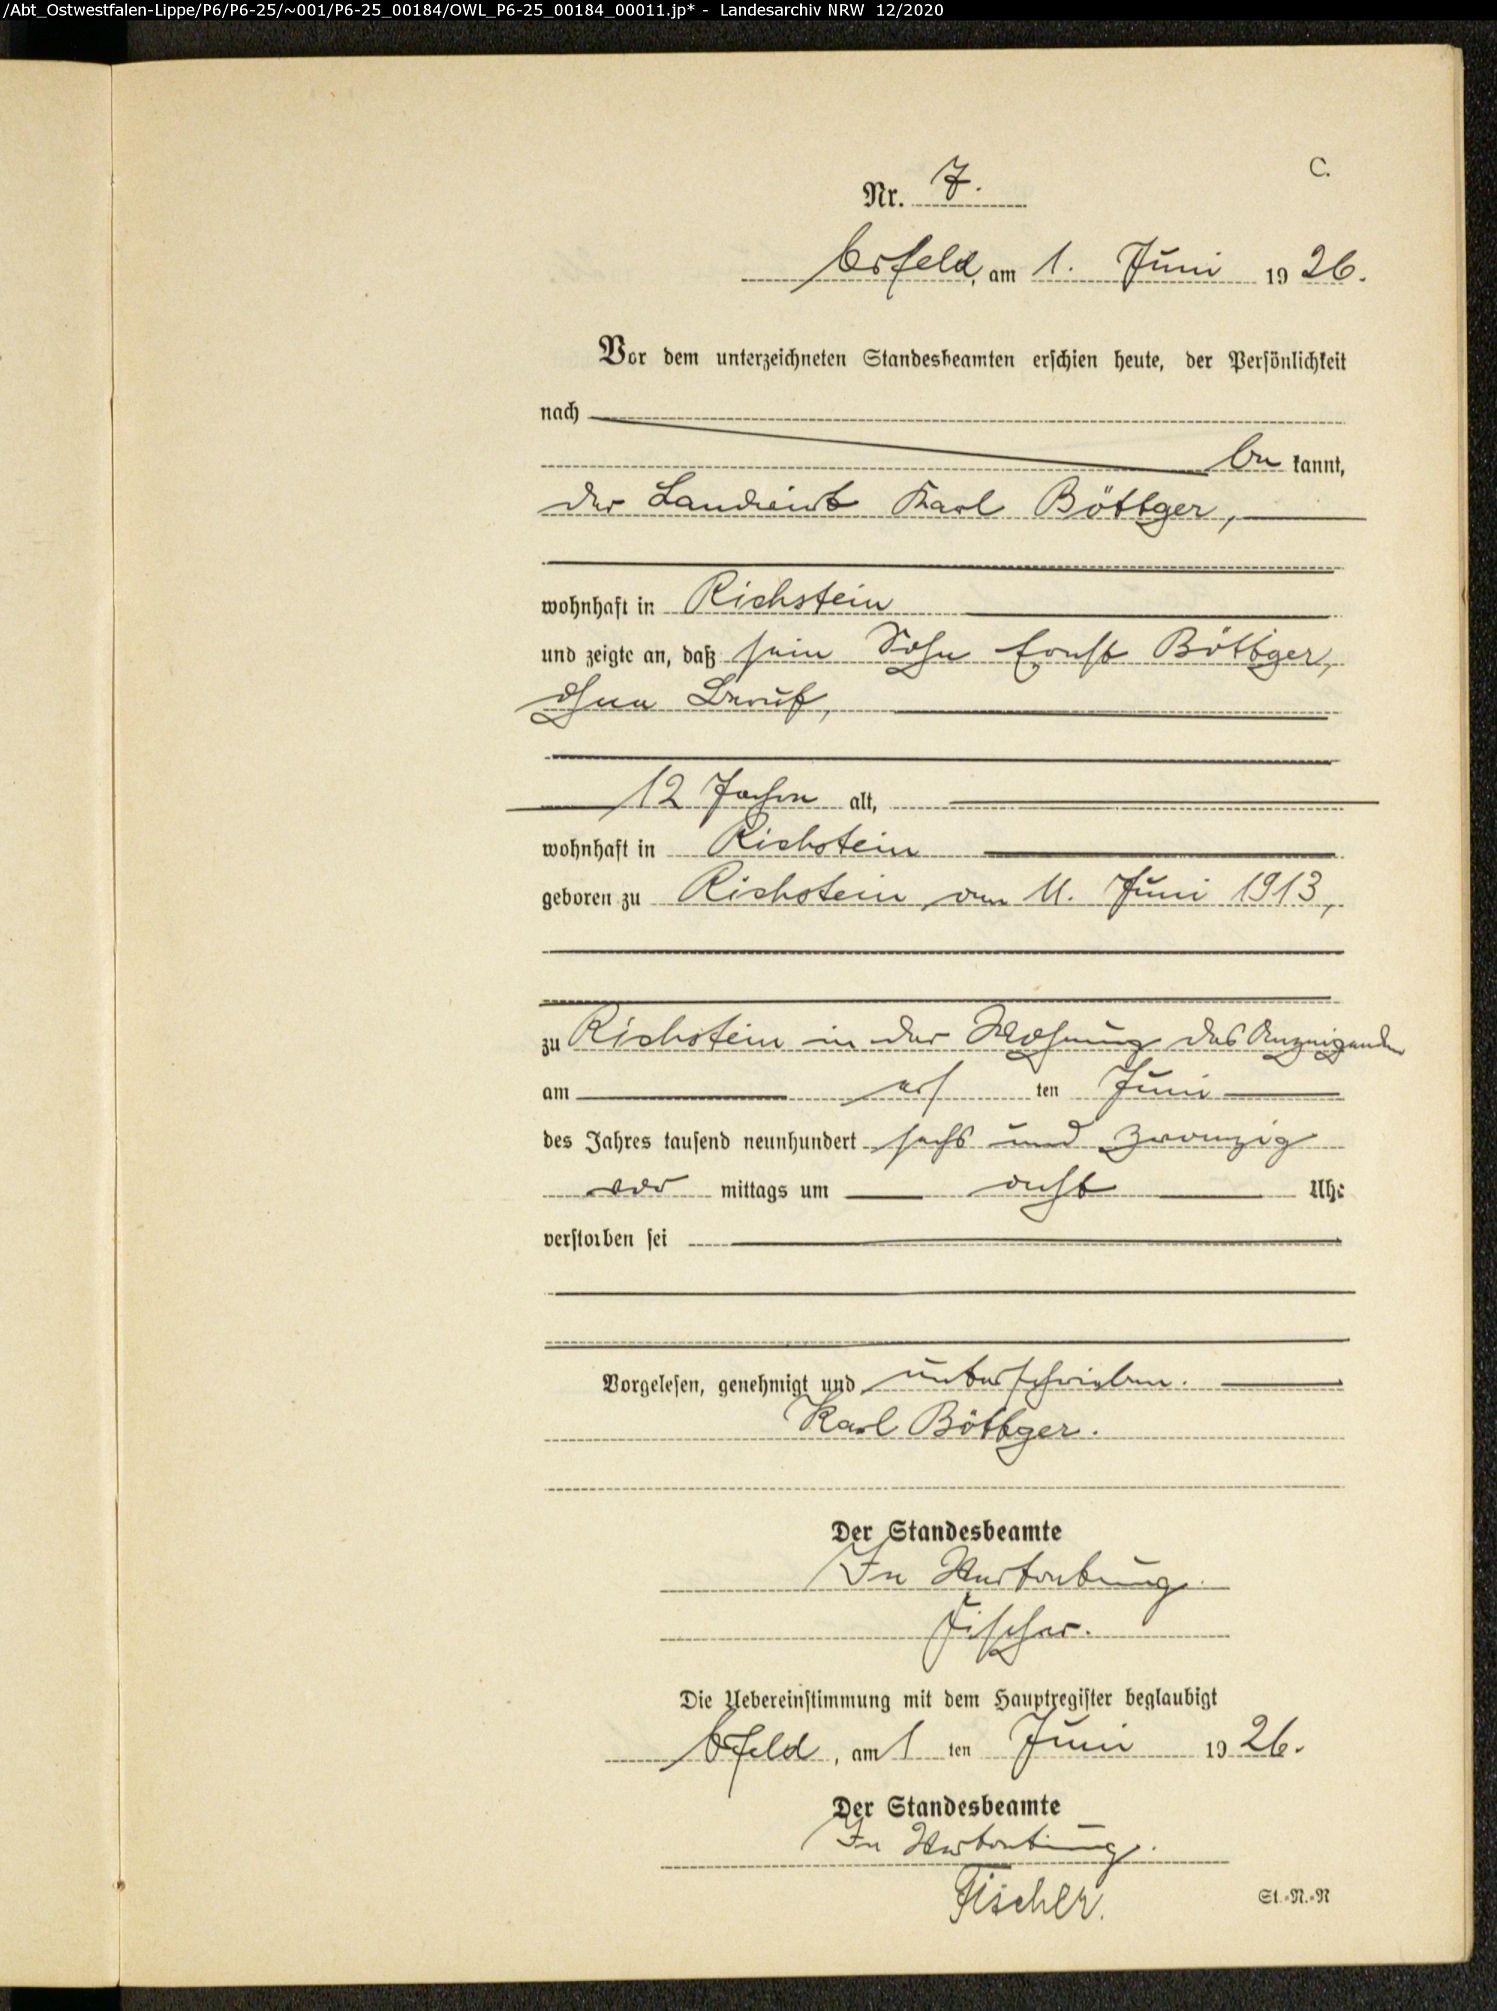 /Abt_Ostwestfalen-Lippe/P6/P6-25/~001/P6-25_00184/OWL_P6-25_00184_00011.jp* - Landesarchiv NRW 12/2020
C.
Nr. 7.
Arfeld, am 1. Juni 1926.
Vor dem unterzeichneten Standesbeamten erschien heute, der Persönlichkeit
nach
be kannt,
der Landwirt Karl Böttger,
wohnhaft in Richstein
und zeigte an, daß sein Sohn Ernst Böttger,
ohne Beruf,
12 Jahre alt,
wohnhaft in Richstein
geboren zu Richstein am 11. Juni 1913,
zu Richstein in der Wohnung des Anzeigenden
am ersten Juni
des Jahres tausend neunhundert sechs und zwanzig
vor mittags um acht Uhr
verstorben sei
Vorgelesen, genehmigt und unterschrieben.
Karl Böttger.
Der Standesbeamte
In Vertretung.
Fischer.
Die Uebereinstimmung mit dem Hauptregister beglaubigt
Arfeld, am 1 ten Juni 1926.
Der Standesbeamte
In Vertretung.
Fischer.
St.-N.-N